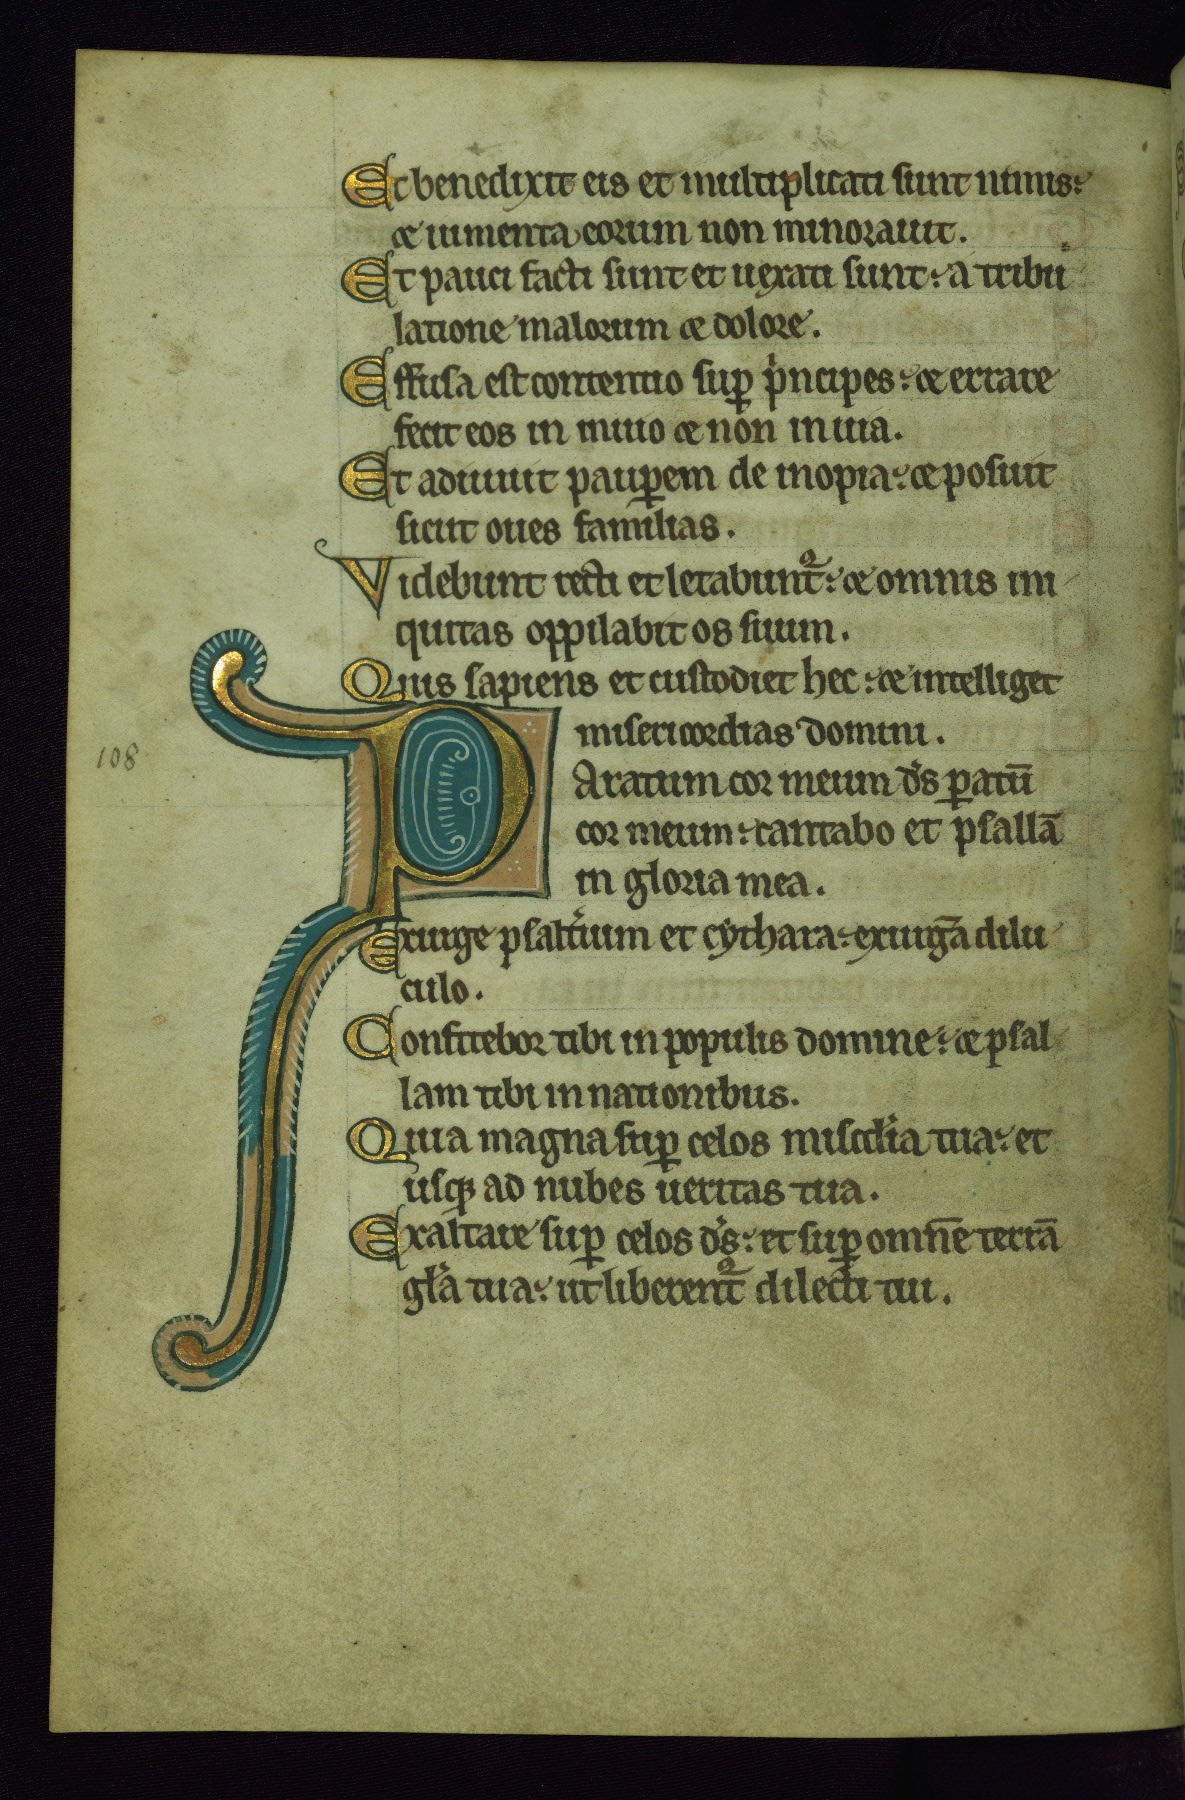 Et benedixit eis et multiplicati sunt nimis:
et iumenta eorum non minorauit.
Et pauci facti sunt et uexati sunt: a tribu
latione malorum et dolore.
Effusa est contentio sup̱ p̍ncipes: et errare
fecit eos in inuio et non in uia.
Et adiuuit paup̱em de inopia: et posuit
sicut oues familias.
Videbunt recti et letabunt᷑: et omnis ini
quitas oppilabit os suum.
Quis sapiens et custodiet hec: et intelliget
misericordias domini.
Paratum cor meum d̄s p̱atū
cor meum: cantabo et psallā
in gloria mea.
Exurge psalt̍ium et cythara: exurgā dilu
culo.
Confitebor tibi in populis domine: et psal
lam tibi in nationibus.
Quia magna sup̱ celos mis̄cdia tua: et
usq; ad nubes ueritas tua.
Exaltare sup̱ celos d̄s: et sup̱ omnē terrā
gl̄a tua: ut liberent᷑ dilecti tui.
108